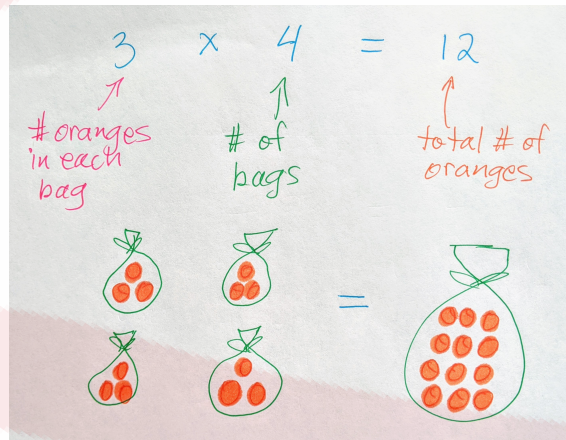 3 x 4 = 12
# oranges
in each
bag
# of
bags
total # of
oranges
=